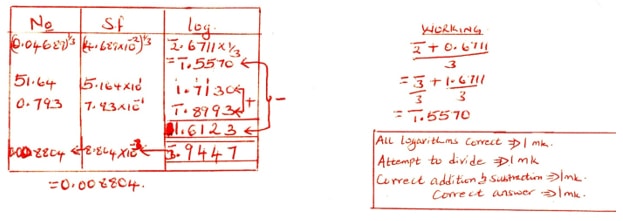 No Sf log
(0.04689)^1/3 (4.689x10^-2)^1/3 2̄.6711 x 1/3
= 1̄.5570
51.64 5.164x10^1 1.7130
0.793 7.93x10^-1 1̄.8993 + -
1.6123
8.804x10^-3 3̄.9447
= 0.008804.
WORKING
2̄ + 0.6711
3
= 3̄ + 1.6711
3 3
= 1̄.5570
All logarithms correct ⇒ 1 mk.
Attempt to divide ⇒ 1 mk
Correct addition & subtraction ⇒ 1 mk.
Correct answer ⇒ 1 mk.